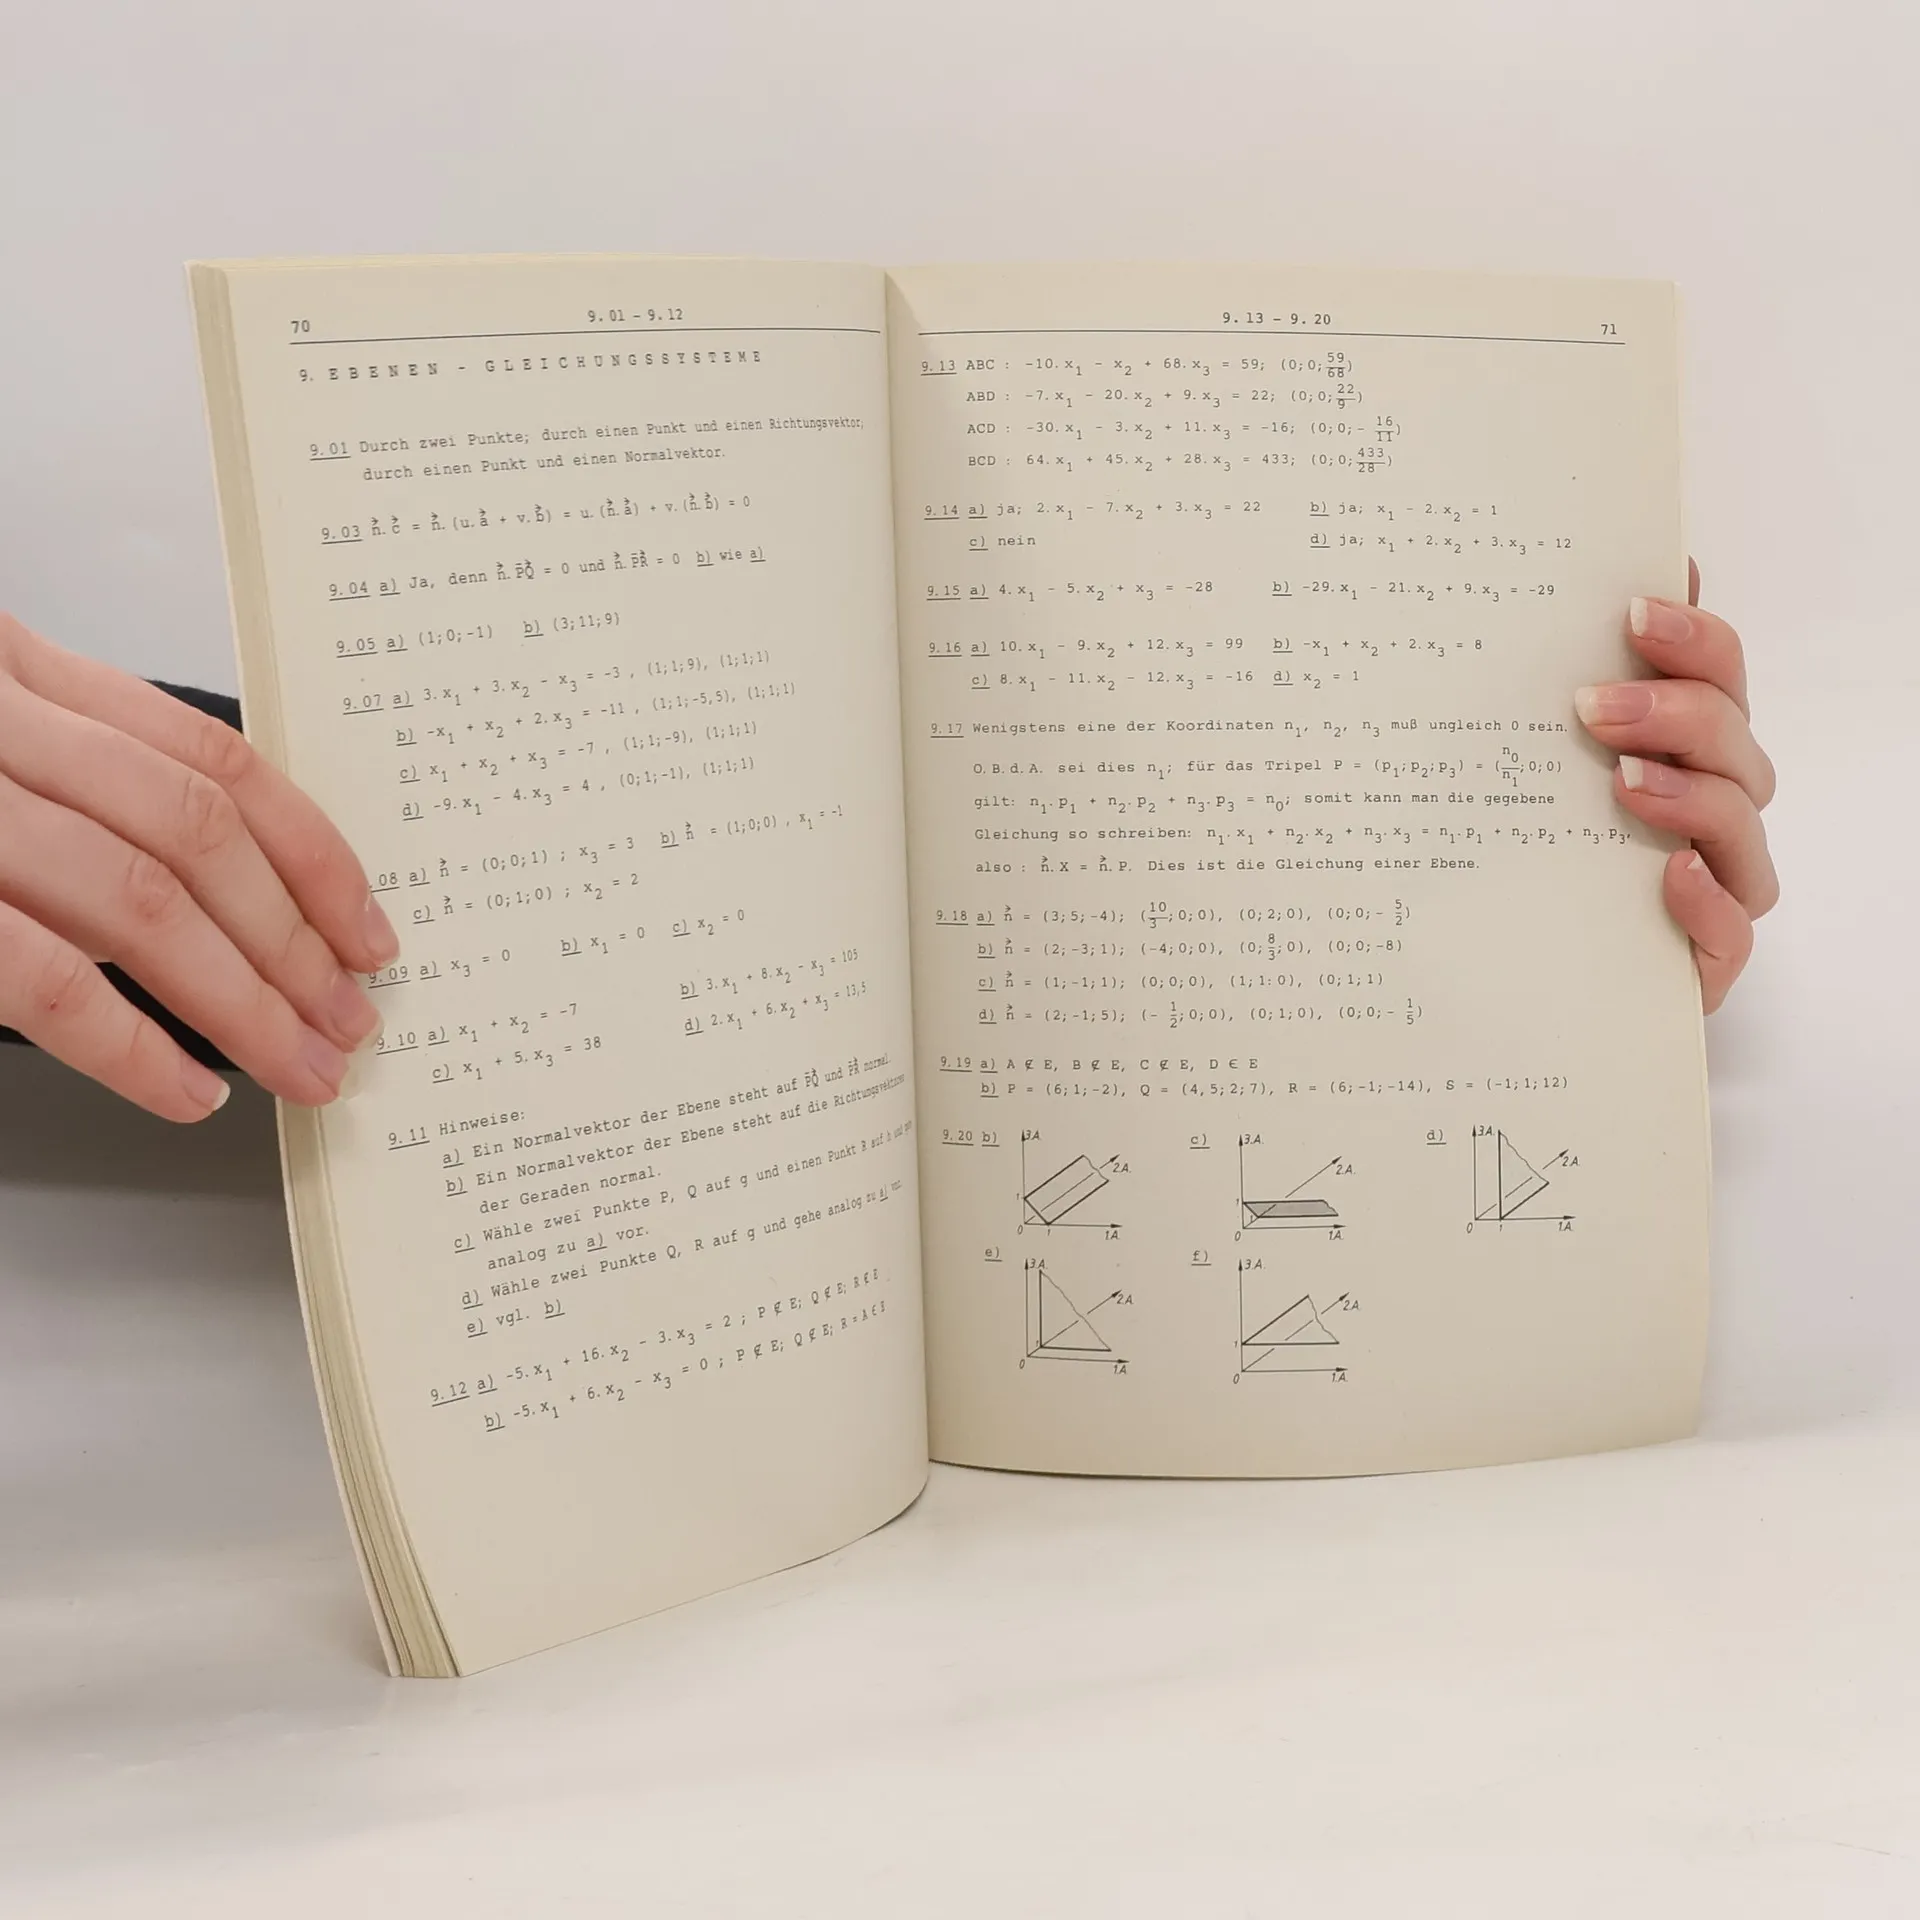 70
9.01 - 9.12
9. EBENEN - GLEICHUNGSSYSTEME
9.01 Durch zwei Punkte; durch einen Punkt und einen Richtungsvektor;
durch einen Punkt und einen Normalvektor.
9.03 n⃗.c⃗ = n⃗.(u.a⃗ + v.b⃗) = u.(n⃗.a⃗) + v.(n⃗.b⃗) = 0
9.04 a) Ja, denn n⃗.PQ⃗ = 0 und n⃗.PR⃗ = 0 b) wie a)
9.05 a) (1;0;-1) b) (3;11;9)
9.07 a) 3.x₁ + 3.x₂ - x₃ = -3, (1;1;9), (1;1;1)
b) -x₁ + x₂ + 2.x₃ = -11, (1;1;-5,5), (1;1;1)
c) x₁ + x₂ + x₃ = -7, (1;1;-9), (1;1;1)
d) -9.x₁ - 4.x₃ = 4, (0;1;-1), (1;1;1)
.08 a) n⃗ = (0;0;1); x₃ = 3 b) n⃗ = (1;0;0), x₁ = -1
c) n⃗ = (0;1;0); x₂ = 2
9.09 a) x₃ = 0 b) x₁ = 0 c) x₂ = 0
9.10 a) x₁ + x₂ = -7 b) 3.x₁ + 8.x₂ - x₃ = 105
c) x₁ + 5.x₃ = 38 d) 2.x₁ + 6.x₂ + x₃ = 13,5
9.11 Hinweise:
a) Ein Normalvektor der Ebene steht auf PQ⃗ und PR⃗ normal.
b) Ein Normalvektor der Ebene steht auf die Richtungsvektoren
der Geraden normal.
c) Wähle zwei Punkte P, Q auf g und einen Punkt R auf h und
analog zu a) vor.
d) Wähle zwei Punkte Q, R auf g und gehe analog zu a) vor.
e) vgl. b)
9.12 a) -5.x₁ + 16.x₂ - 3.x₃ = 2; P ∉ E; Q ∉ E; R ∉ E
b) -5.x₁ + 6.x₂ - x₃ = 0; P ∉ E; Q ∉ E; R = A ∈ E
9.13 - 9.20
71
9.13 ABC : -10.x₁ - x₂ + 68.x₃ = 59; (0;0;59/68)
ABD : -7.x₁ - 20.x₂ + 9.x₃ = 22; (0;0;22/9)
ACD : -30.x₁ - 3.x₂ + 11.x₃ = -16; (0;0;- 16/11)
BCD : 64.x₁ + 45.x₂ + 28.x₃ = 433; (0;0;433/28)
9.14 a) ja; 2.x₁ - 7.x₂ + 3.x₃ = 22 b) ja; x₁ - 2.x₂ = 1
c) nein d) ja; x₁ + 2.x₂ + 3.x₃ = 12
9.15 a) 4.x₁ - 5.x₂ + x₃ = -28 b) -29.x₁ - 21.x₂ + 9.x₃ = -29
9.16 a) 10.x₁ - 9.x₂ + 12.x₃ = 99 b) -x₁ + x₂ + 2.x₃ = 8
c) 8.x₁ - 11.x₂ - 12.x₃ = -16 d) x₂ = 1
9.17 Wenigstens eine der Koordinaten n₁, n₂, n₃ muß ungleich 0 sein.
O.B.d.A. sei dies n₁; für das Tripel P = (p₁;p₂;p₃) = (n₀/n₁;0;0)
gilt: n₁.p₁ + n₂.p₂ + n₃.p₃ = n₀; somit kann man die gegebene
Gleichung so schreiben: n₁.x₁ + n₂.x₂ + n₃.x₃ = n₁.p₁ + n₂.p₂ + n₃.p₃,
also : n⃗.X = n⃗.P. Dies ist die Gleichung einer Ebene.
9.18 a) n⃗ = (3;5;-4); (10/3;0;0), (0;2;0), (0;0;- 5/2)
b) n⃗ = (2;-3;1); (-4;0;0), (0;8/3;0), (0;0;-8)
c) n⃗ = (1;-1;1); (0;0;0), (1;1:0), (0;1;1)
d) n⃗ = (2;-1;5); (- 1/2;0;0), (0;1;0), (0;0;- 1/5)
9.19 a) A ∉ E, B ∉ E, C ∉ E, D ∈ E
b) P = (6;1;-2), Q = (4,5;2;7), R = (6;-1;-14), S = (-1;1;12)
9.20 b) 3A. 2A. 1 0 1 1A.
c) 3A. 2A. 1 0 1A.
d) 3A. 2A. 0 1 1A.
e) 3A. 2A. 1 0 1A.
f) 3A. 2A. 1 0 1A.